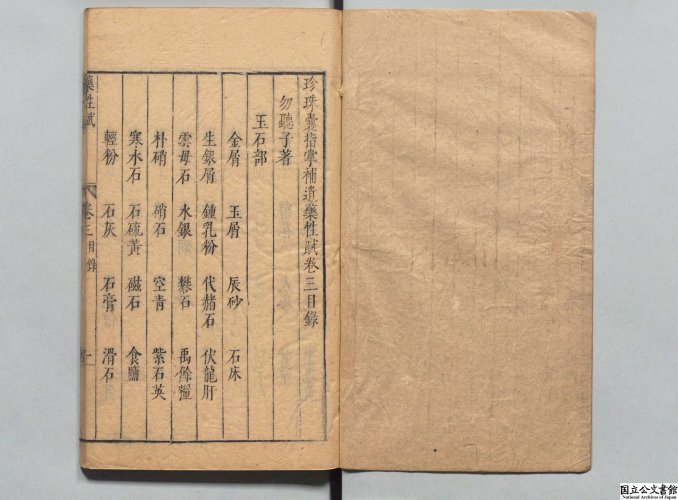 珍珠囊指掌補遺藥性賦卷三目錄
勿聽子著
玉石部
金屑 玉屑 辰砂 石床
生銀屑 鍾乳粉 代赭石 伏龍肝
雲母石 水銀 礬石 禹餘糧
朴硝 硝石 空青 紫石英
寒水石 石硫黃 磁石 食鹽
輕粉 石灰 石膏 滑石
藥性賦 卷三目錄 一
国立公文書館
National Archives of Japan